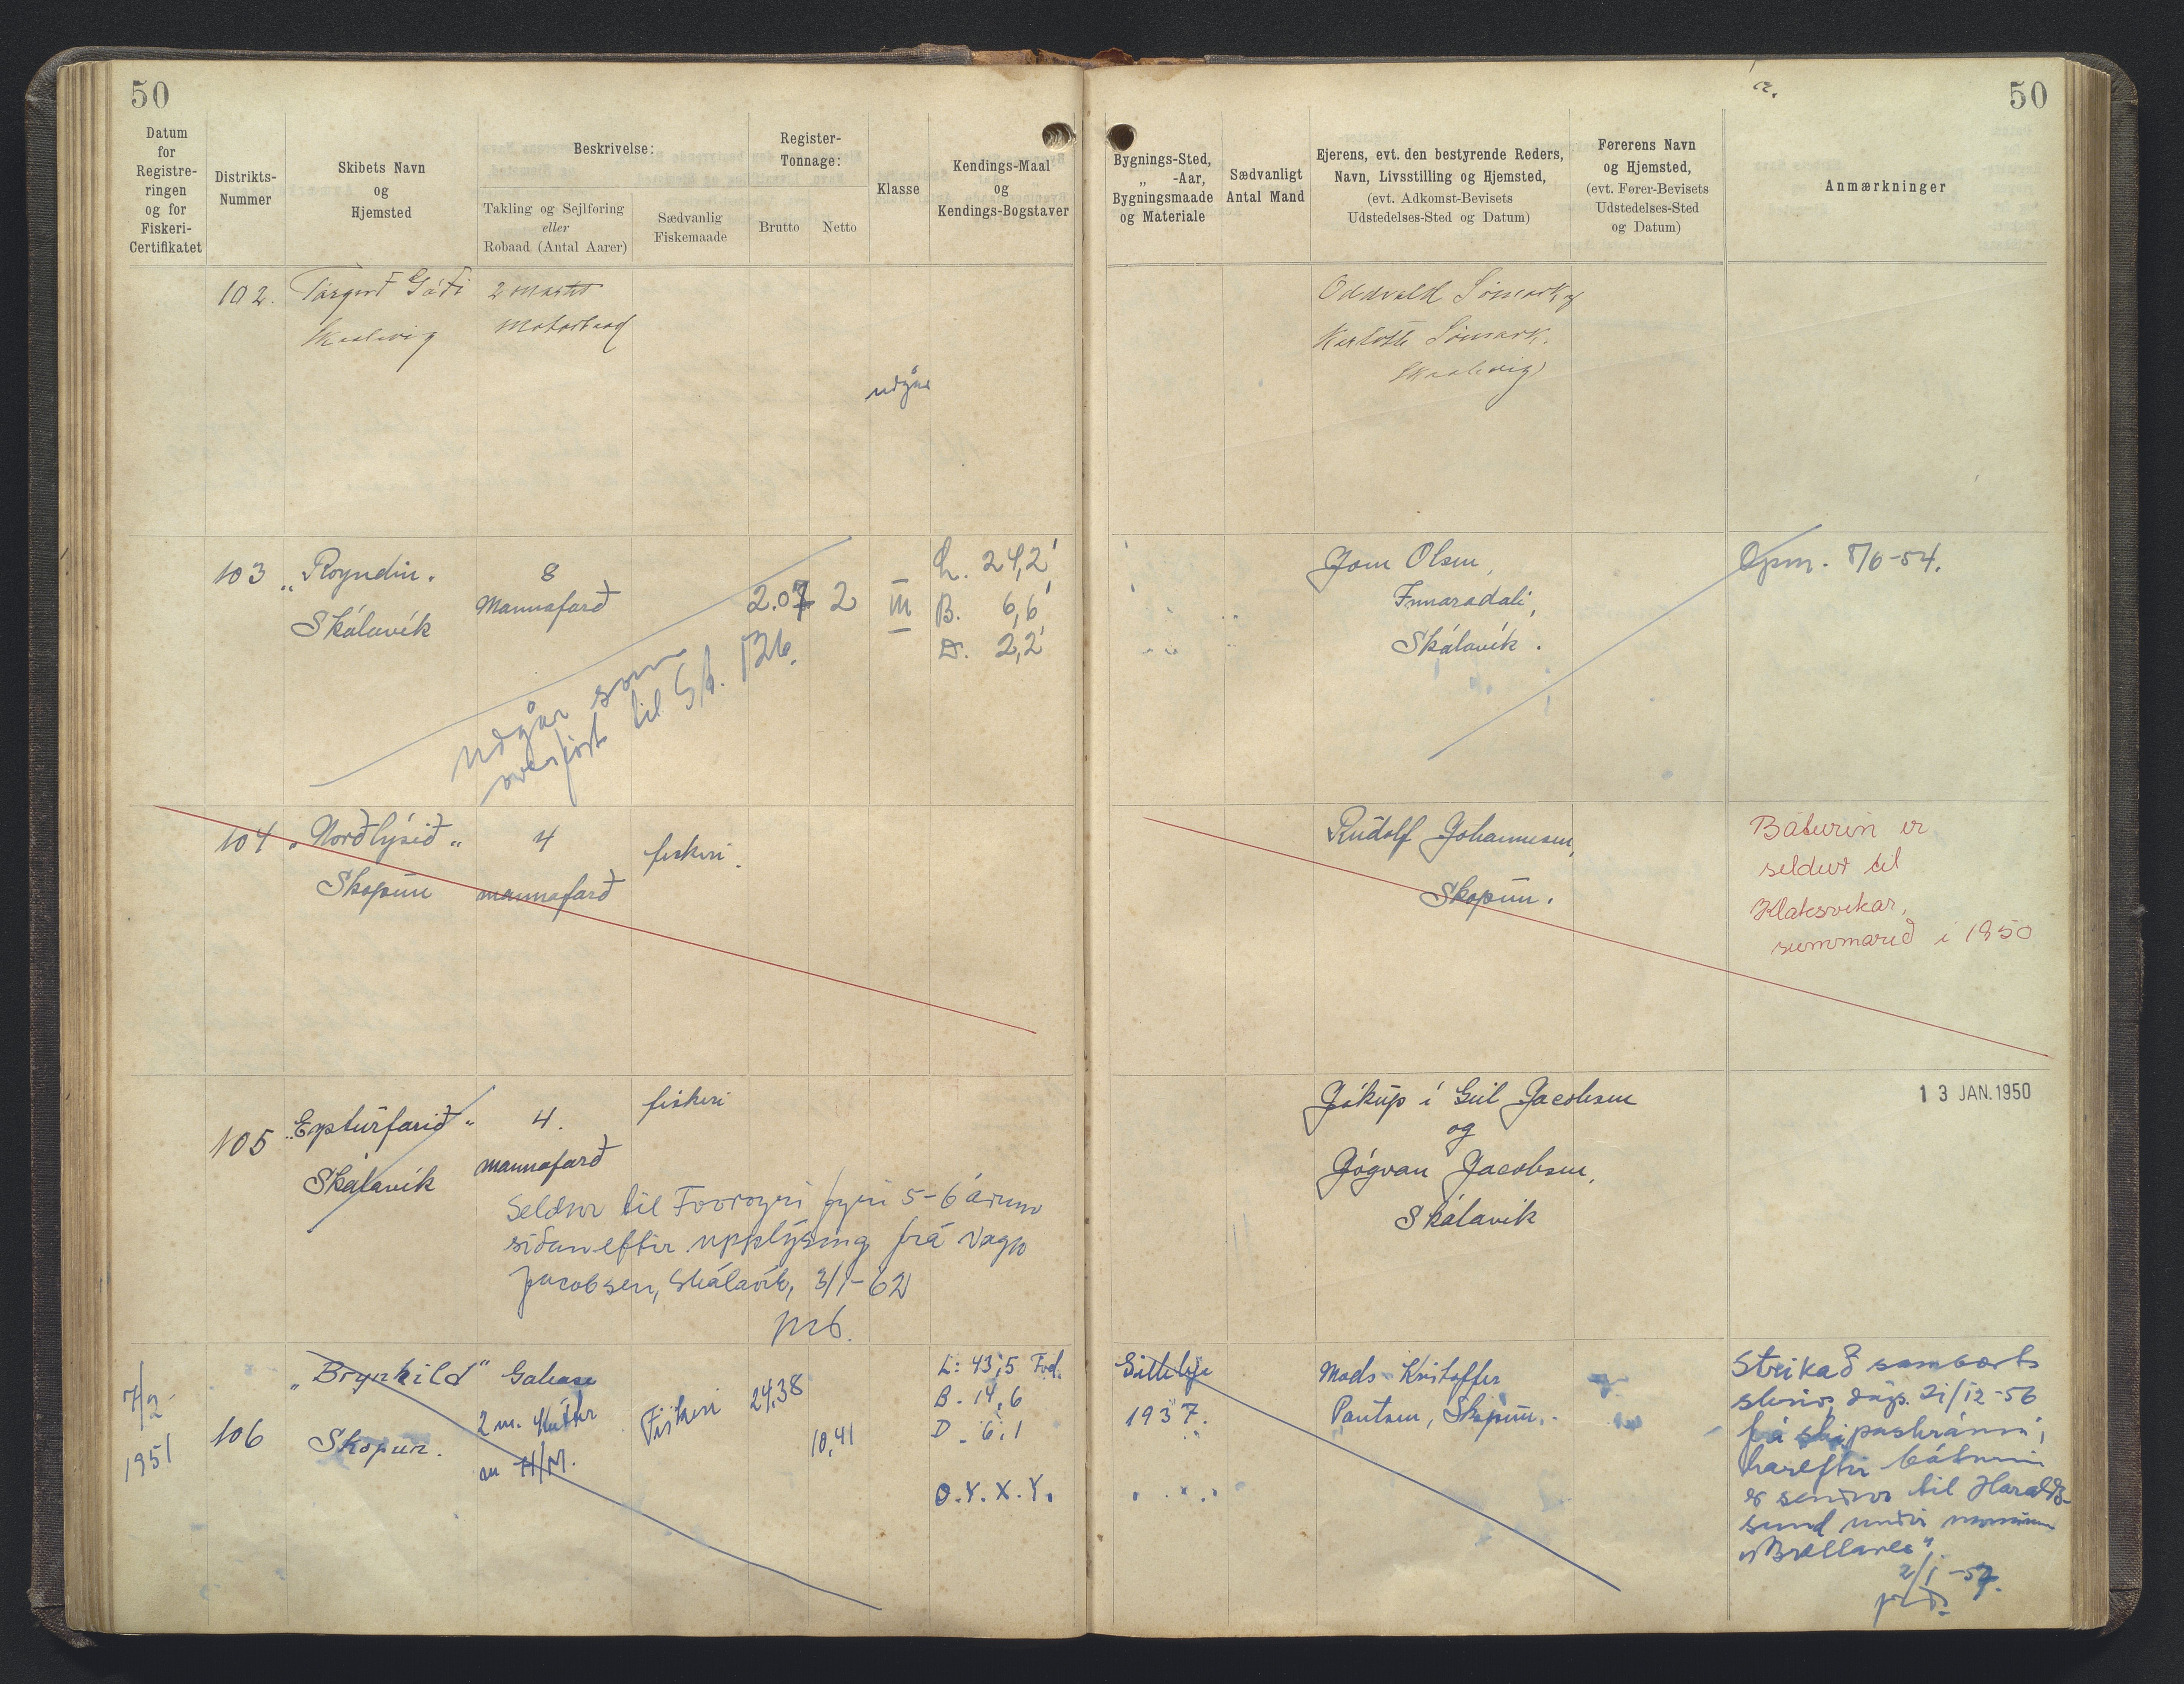 50
50
Datum
for
Registre-
ringen
og for
Fiskeri-
Certifikatet
Distrikts-
Nummer
Skibets Navn
og
Hjemsted
Beskrivelse:
Takling og Sejlføring
eller
Robaad (Antal Aarer)
Sædvanlig
Fiskemaade
Register-
Tonnage:
Brutto
Netto
Klasse
Kendings-Maal
og
Kendings-Bogstaver
Bygnings-Sted,
„ -Aar,
Bygningsmaade
og Materiale
Sædvanligt
Antal Mand
Ejerens, evt. den bestyrende Reders,
Navn, Livsstilling og Hjemsted,
(evt. Adkomst-Bevisets
Udstedelses-Sted og Datum)
Førerens Navn
og Hjemsted,
(evt. Fører-Bevisets
Udstedelses-Sted
og Datum)
Anmærkninger
102.
Skaalevig
2 mastet
Motorbaad
udgår
Oddvald
Skaalevig
103
„Royndin"
Skálavík
8
Mannafarð
2.07
2
III
L. 24,2'
B. 6,6'
D. 2,2'
udgår som
overført til Sk. 126.
Olsen,
Skálavík.
Opm. 8/6-54.
104
„Norðlýsið"
Skopun
4
mannafarð
fiskeri.
Rudolf Johannesen,
Skopun.
Báturin er
seldur til
Klaksvíkar,
summarið í 1950
105
„Eptirfarið"
Skálavík
4.
mannafarð
fiskeri
Seldur til Froroyri fyri 5-6 árum
síðan eftir upplýsing frá
Jacobsen, Skálavík, 3/1-62
Jákup í Jacobsen
og
Jógvan Jacobsen,
Skálavík
13 JAN. 1950
7/2-
1951
106
„Brynhild"
Skopun.
Galease
2 m. Kutter
m H/M.
Fiskeri
24,38
10,41
L: 43,5 Fod.
B. 14,6
D. 6,1
O.Y.X.Y.
Gilleleje
1937.
Mads Kristoffer
Poulsen, Skopun.
Strikað sambært
skriv. dags. 21/12-56
frá skipaskránni,
hareftir báturin
er seldur til Haralds-
sund undir navninum
2/1-57.